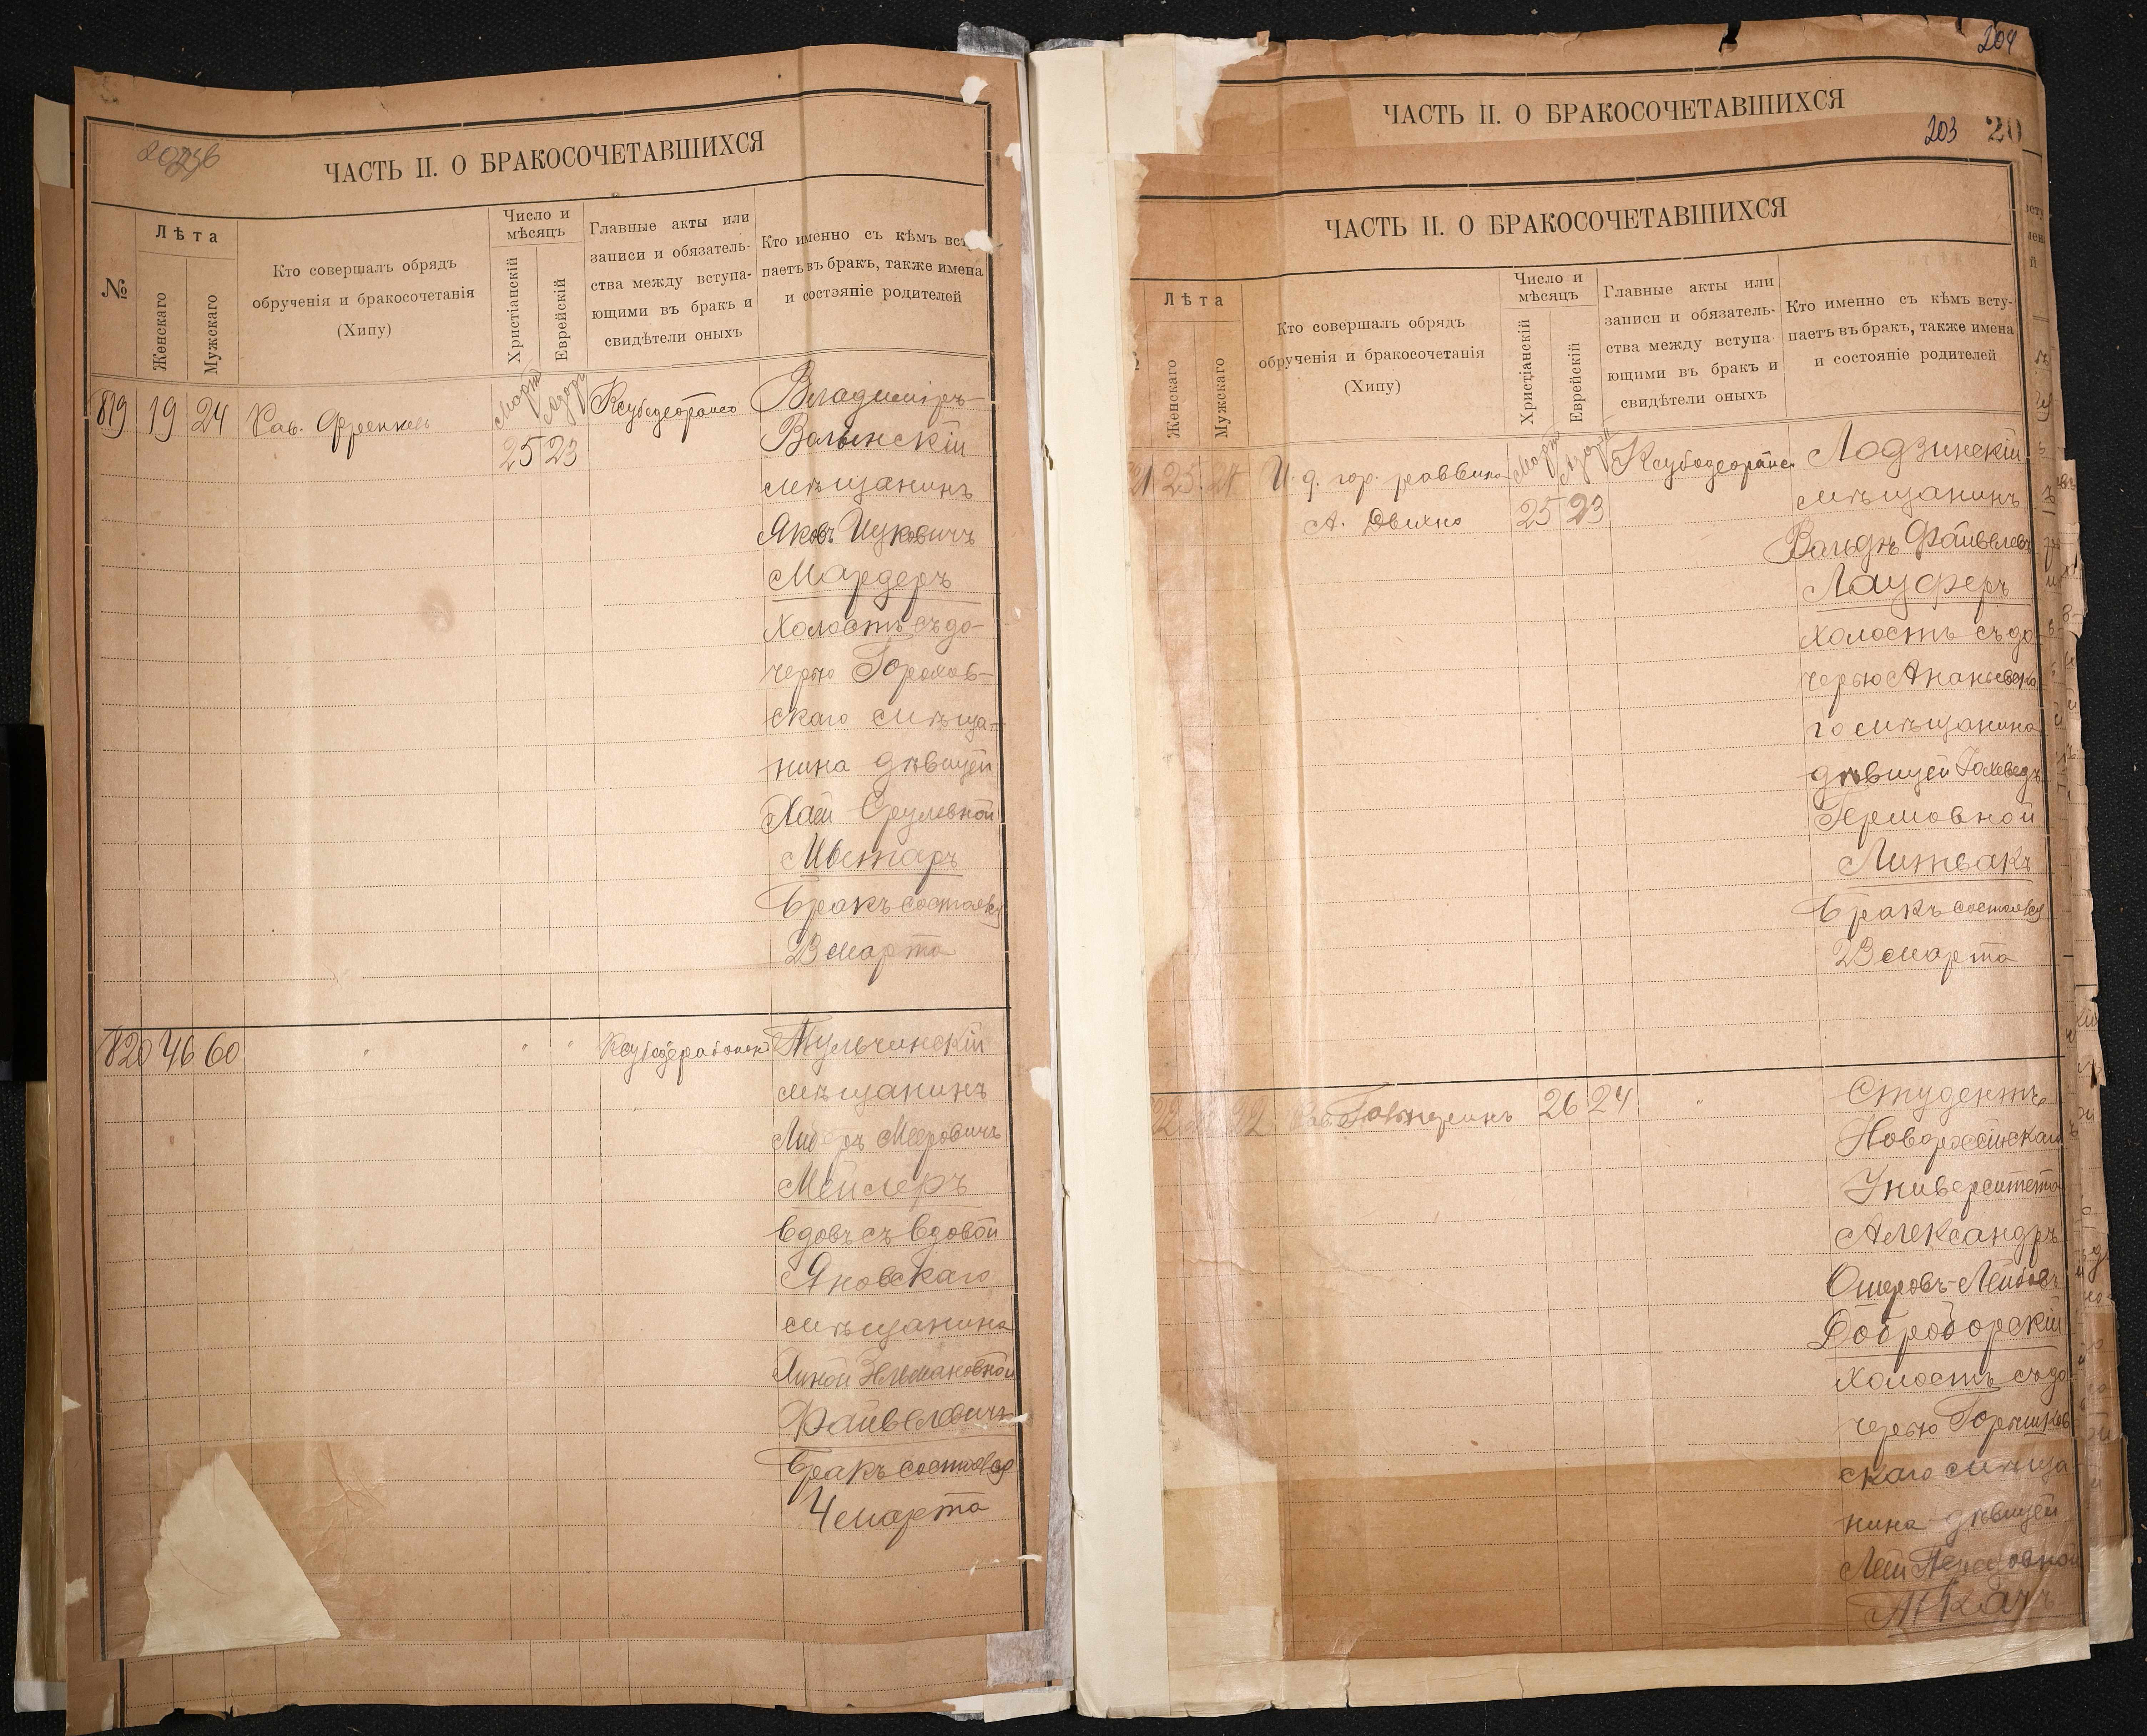 ЧАСТЬ II. О БРАКОСОЧЕТАВШИХСЯ
№
Лѣта
Женскаго
Мужскаго
Кто совершалъ обрядъ
обрученія и бракосочетанія
(Хипу)
Число и
мѣсяцъ
Христіанскій
Еврейскій
Главные акты или
записи и обязатель-
ства между вступа-
ющими въ бракъ и
свидѣтели оныхъ
Кто именно съ кѣмъ вст
паетъ въ бракъ, также имена
и состояніе родителей
819 19 24 Рав. Френкель
Мартъ
25 23
Владимiръ-
Волынскій
мѣщанинъ
Яковъ Ицковичъ
Мардеръ
холостъ съ до-
черью Горохов-
скаго мѣща-
нина дѣвицей
Хаей Срулевной
Бракъ состоялся
23 марта
820 46 60 " " "
Тульчинскій
мѣщанинъ
Мееровичъ
Мейлеръ
вдовъ съ вдовой
Яновскаго
мѣщанина
Файвелевичъ
Бракъ состоялся
4 марта
204
ЧАСТЬ II. О БРАКОСОЧЕТАВШИХСЯ
203 20
ЧАСТЬ II. О БРАКОСОЧЕТАВШИХСЯ
Лѣта
Женскаго
Мужскаго
Кто совершалъ обрядъ
обрученія и бракосочетанія
(Хипу)
Число и
мѣсяцъ
Христіанскій
Еврейскій
Главные акты или
записи и обязатель-
ства между вступа-
ющими въ бракъ и
свидѣтели оныхъ
Кто именно съ кѣмъ всту-
паетъ въ бракъ, также имена
и состояніе родителей
21 25 24 И. д. гор. раввина
А. Двихно
Мартъ
25 23
Лодзинскій
мѣщанинъ
Вольдъ Файвелевъ
Лауферъ
холостъ съ до
черью Ананьевска
го мѣщанина
дѣвицей Іохеведъ
Гершовной
Литвакъ
Бракъ состоялся
23 марта
22 26 24 "
Студентъ
Новороссійскаго
Университета
Александръ
Ошеровъ-Лейбовъ
Доброборскій
холостъ съ до
черью Горшков
скаго мѣща
нина дѣвицей
Леей